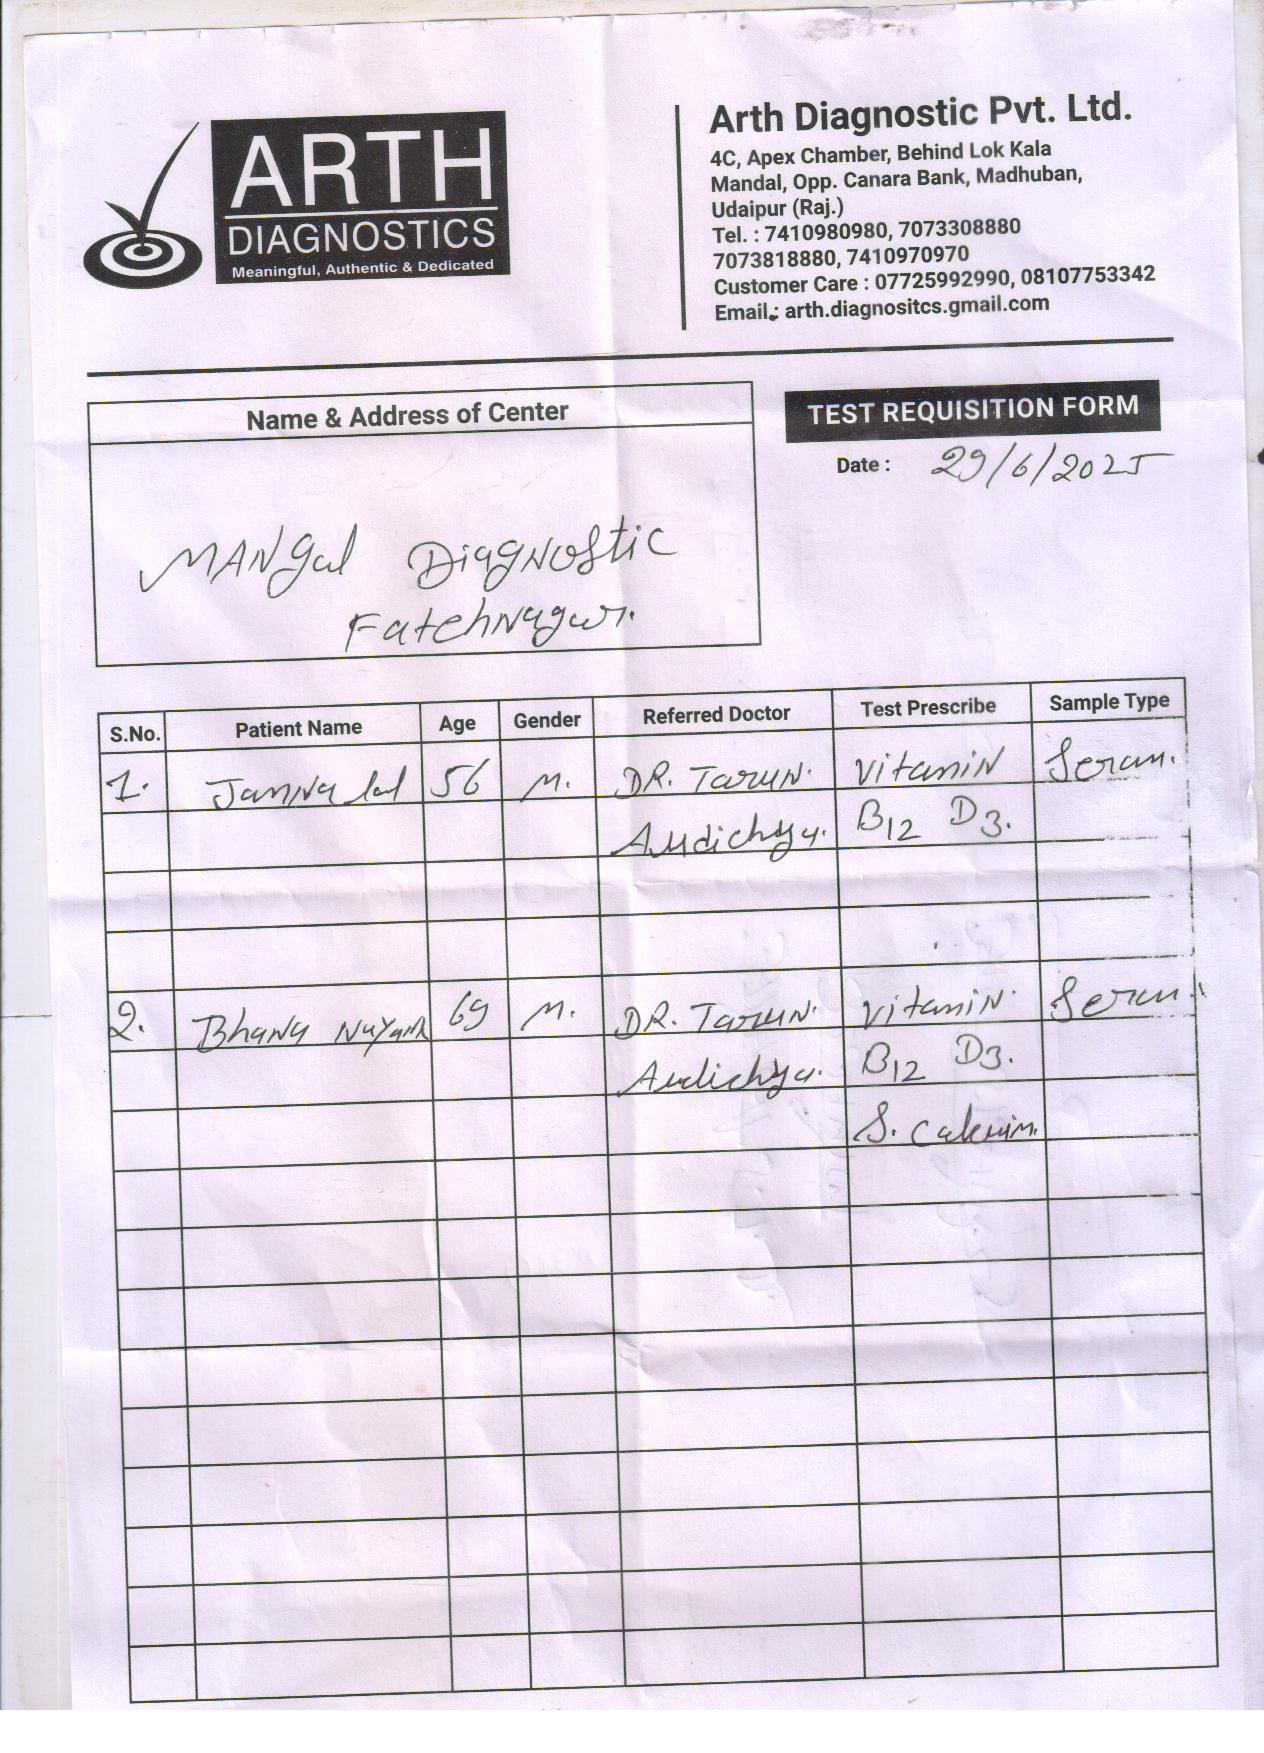 ARTH
DIAGNOSTICS
Meaningful, Authentic & Dedicated
Arth Diagnostic Pvt. Ltd.
4C, Apex Chamber, Behind Lok Kala
Mandal, Opp. Canara Bank, Madhuban,
Udaipur (Raj.)
Tel. : 7410980980, 7073308880
7073818880, 7410970970
Customer Care : 07725992990, 08107753342
Email.: arth.diagnositcs.gmail.com
Name & Address of Center
MANgal DiagNostic
FatehNagar.
TEST REQUISITION FORM
Date : 29/6/2025
S.No. Patient Name Age Gender Referred Doctor Test Prescribe Sample Type
1. JamNa lal 56 M. DR. TaruN. VitamiN Seram.
Audichya. B12 D3.
2. BhaNa Nayak 69 M. DR. TaruN. VitamiN. Seram.
Audichya. B12 D3.
S. Calcuim.